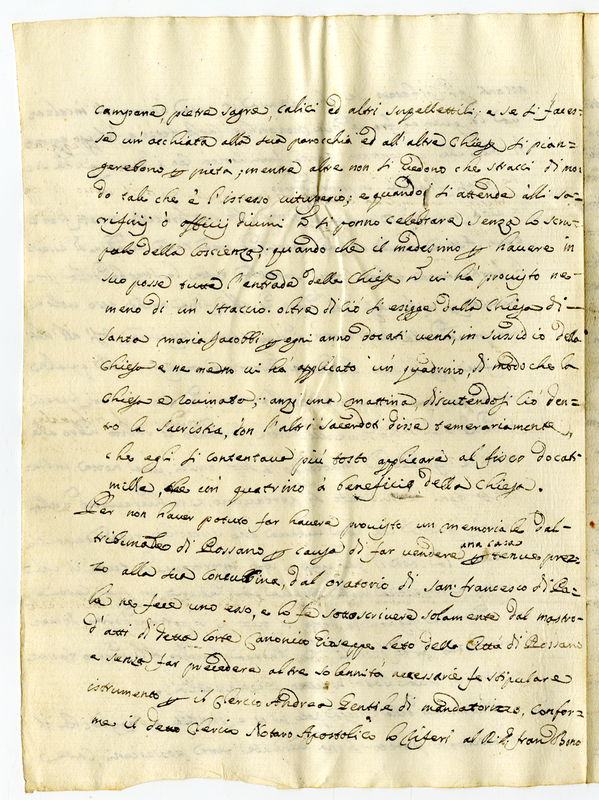 campane, pietre sagre, calici ed altri supellettili; e se si faces=
se un'occhiata alla sua parocchia ed all'altre Chiese si pian=
gerebono p pietà; mentre altre non si vedono che stracci di mo=
do tali che è l'istesso vituperio; e quando si attende alli sa=
crificij ò officij divini ñ si ponno celebrare senza lo scru=
polo della coscienza; quando che il medesimo p havere in
suo posse tutte l'entrade della Chiesa ñ vi hà provisto ne=
meno di un straccio. oltre di ciò si esigge dalla Chiesa di
Santa maria Jacobbi p ogni anno docati venti, in sussidio della
Chiesa e ne meno vi hà applicato un quadrino, di modo che la
Chiesa e rovinata; anzi una mattina, discutendosi ciò den=
tro la Sacristia, con l'altri sacerdoti disse temerariamente,
che egli si contentava più tosto applicare al fisco docati
mille, che un quatrino à beneficio della Chiesa.
Per non haver potuto far havere provisto un memoriale dal=
tribunale di Rossano p causa di far vendere una casa p tenue prez=
zo alla sua dal oratorio di san francesco di Pa=
la ne fece uno esso, e lo fe sottoscrivere solamente dal mastro=
d'atti di detta Corte Canonico Giuseppe Leto della Città di Rossano
e senza far precedere altre solennità necessarie fe stipulare
istrumento p il Clerico Andrea Gentile di mandatorizzo, confor=
me il detto Clerico Notaro Apostolico lo riferì al